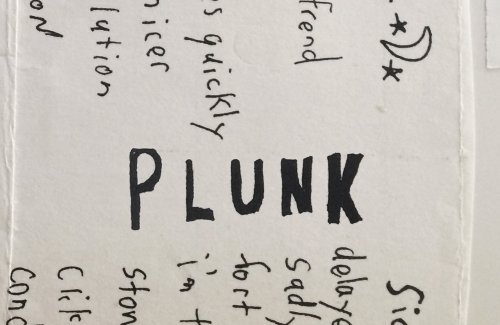 frend
s quickly
nicer
lution
ON
PLUNK
Sic
delaye
sadly
in t
ston
conc